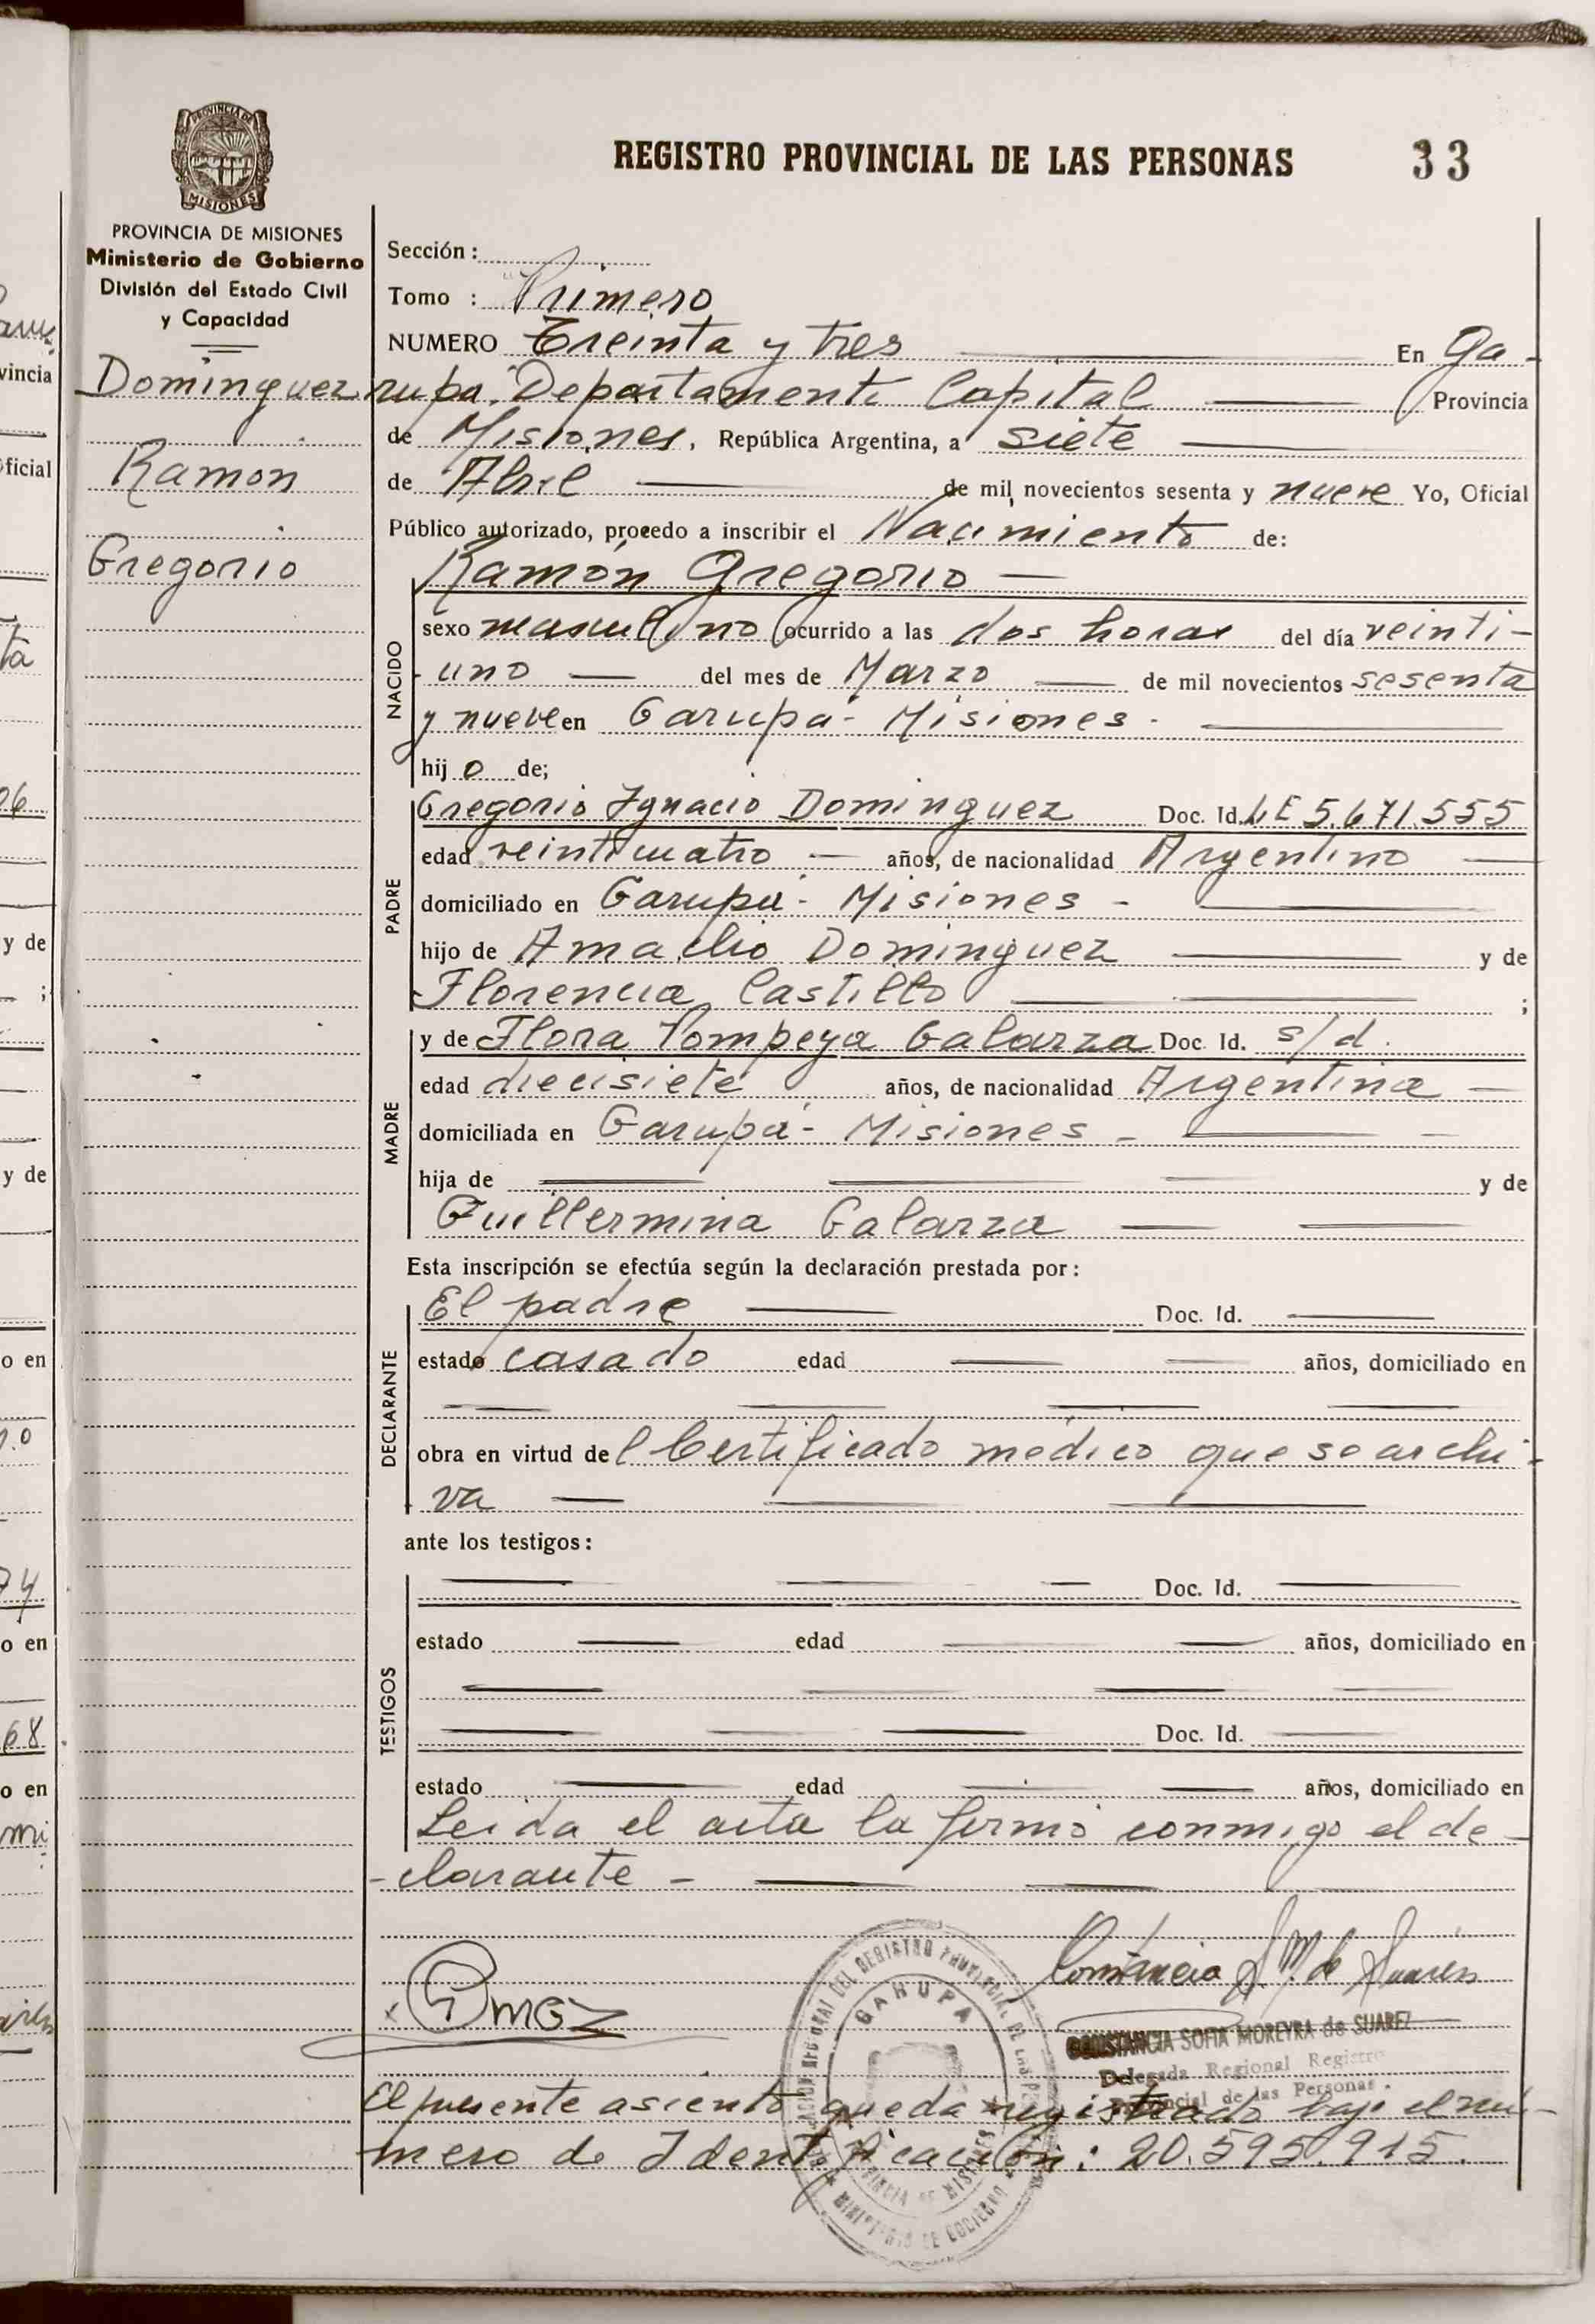 REGISTRO PROVINCIAL DE LAS PERSONAS 33
PROVINCIA DE
MISIONES
PROVINCIA DE MISIONES
Ministerio de Gobierno
División del Estado Civil
y Capacidad
Dominguez
Ramon
Gregorio
Sección :
Tomo : Primero
NUMERO Treinta y tres En Ga-
rupá. Departamento Capital Provincia
de Misiones, República Argentina, a siete
de Abril de mil novecientos sesenta y nueve Yo, Oficial
Público autorizado, procedo a inscribir el Nacimiento de:
Ramón Gregorio
NACIDO
sexo masculino ocurrido a las dos horas del día veinti-
uno del mes de Marzo de mil novecientos sesenta
y nueve en Garupá- Misiones-
hijo de;
PADRE
Gregorio Ignacio Dominguez Doc. Id. LE 5.671.555
edad veinticuatro años, de nacionalidad Argentino
domiciliado en Garupá- Misiones-
hijo de Amaclio Dominguez y de
Florencia Castillo ;
MADRE
y de Flora Pompeya Galarza Doc. Id. s/d.
edad diecisiete años, de nacionalidad Argentina
domiciliada en Garupá- Misiones-
hija de y de
Guillermina Galarza
Esta inscripción se efectúa según la declaración prestada por:
DECLARANTE
El padre Doc. Id.
estado casado edad años, domiciliado en
obra en virtud del Certificado medico que se archi-
va
ante los testigos:
TESTIGOS
Doc. Id.
estado edad años, domiciliado en
Doc. Id.
estado edad años, domiciliado en
Leida el acta la firmó conmigo el de-
-clarante-
Constancia S. M. de Suarez
GARUPA
CONSTANCIA SOFIA MOREYRA de SUAREZ
Delegada Regional Registro
Provincial de las Personas.
PROVINCIA DE MISIONES
MINISTERIO DE GOBIERNO
El presente asiento queda registrado bajo el nú-
mero de Identificación: 20.595.915.
y de
y de
o en
o en
o en
68